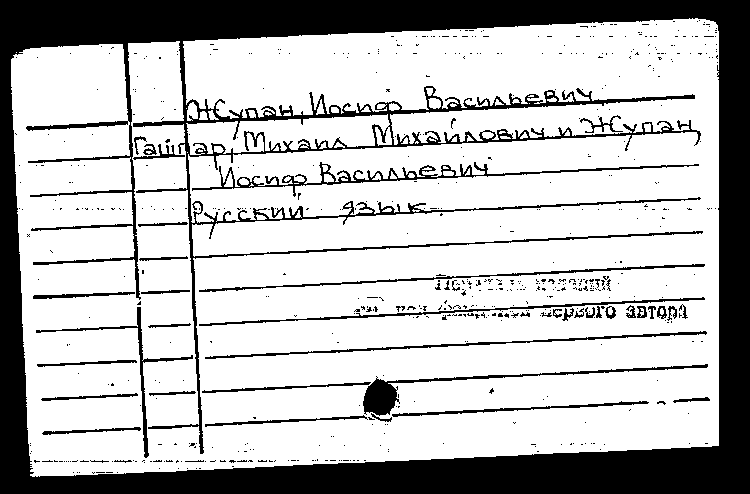 Жупан, Иосиф Васильевич.
Гайпар, Михаил Михайлович и Жупан,
Иосиф Васильевич
Русский язык.
изданий
под фамилией первого автора